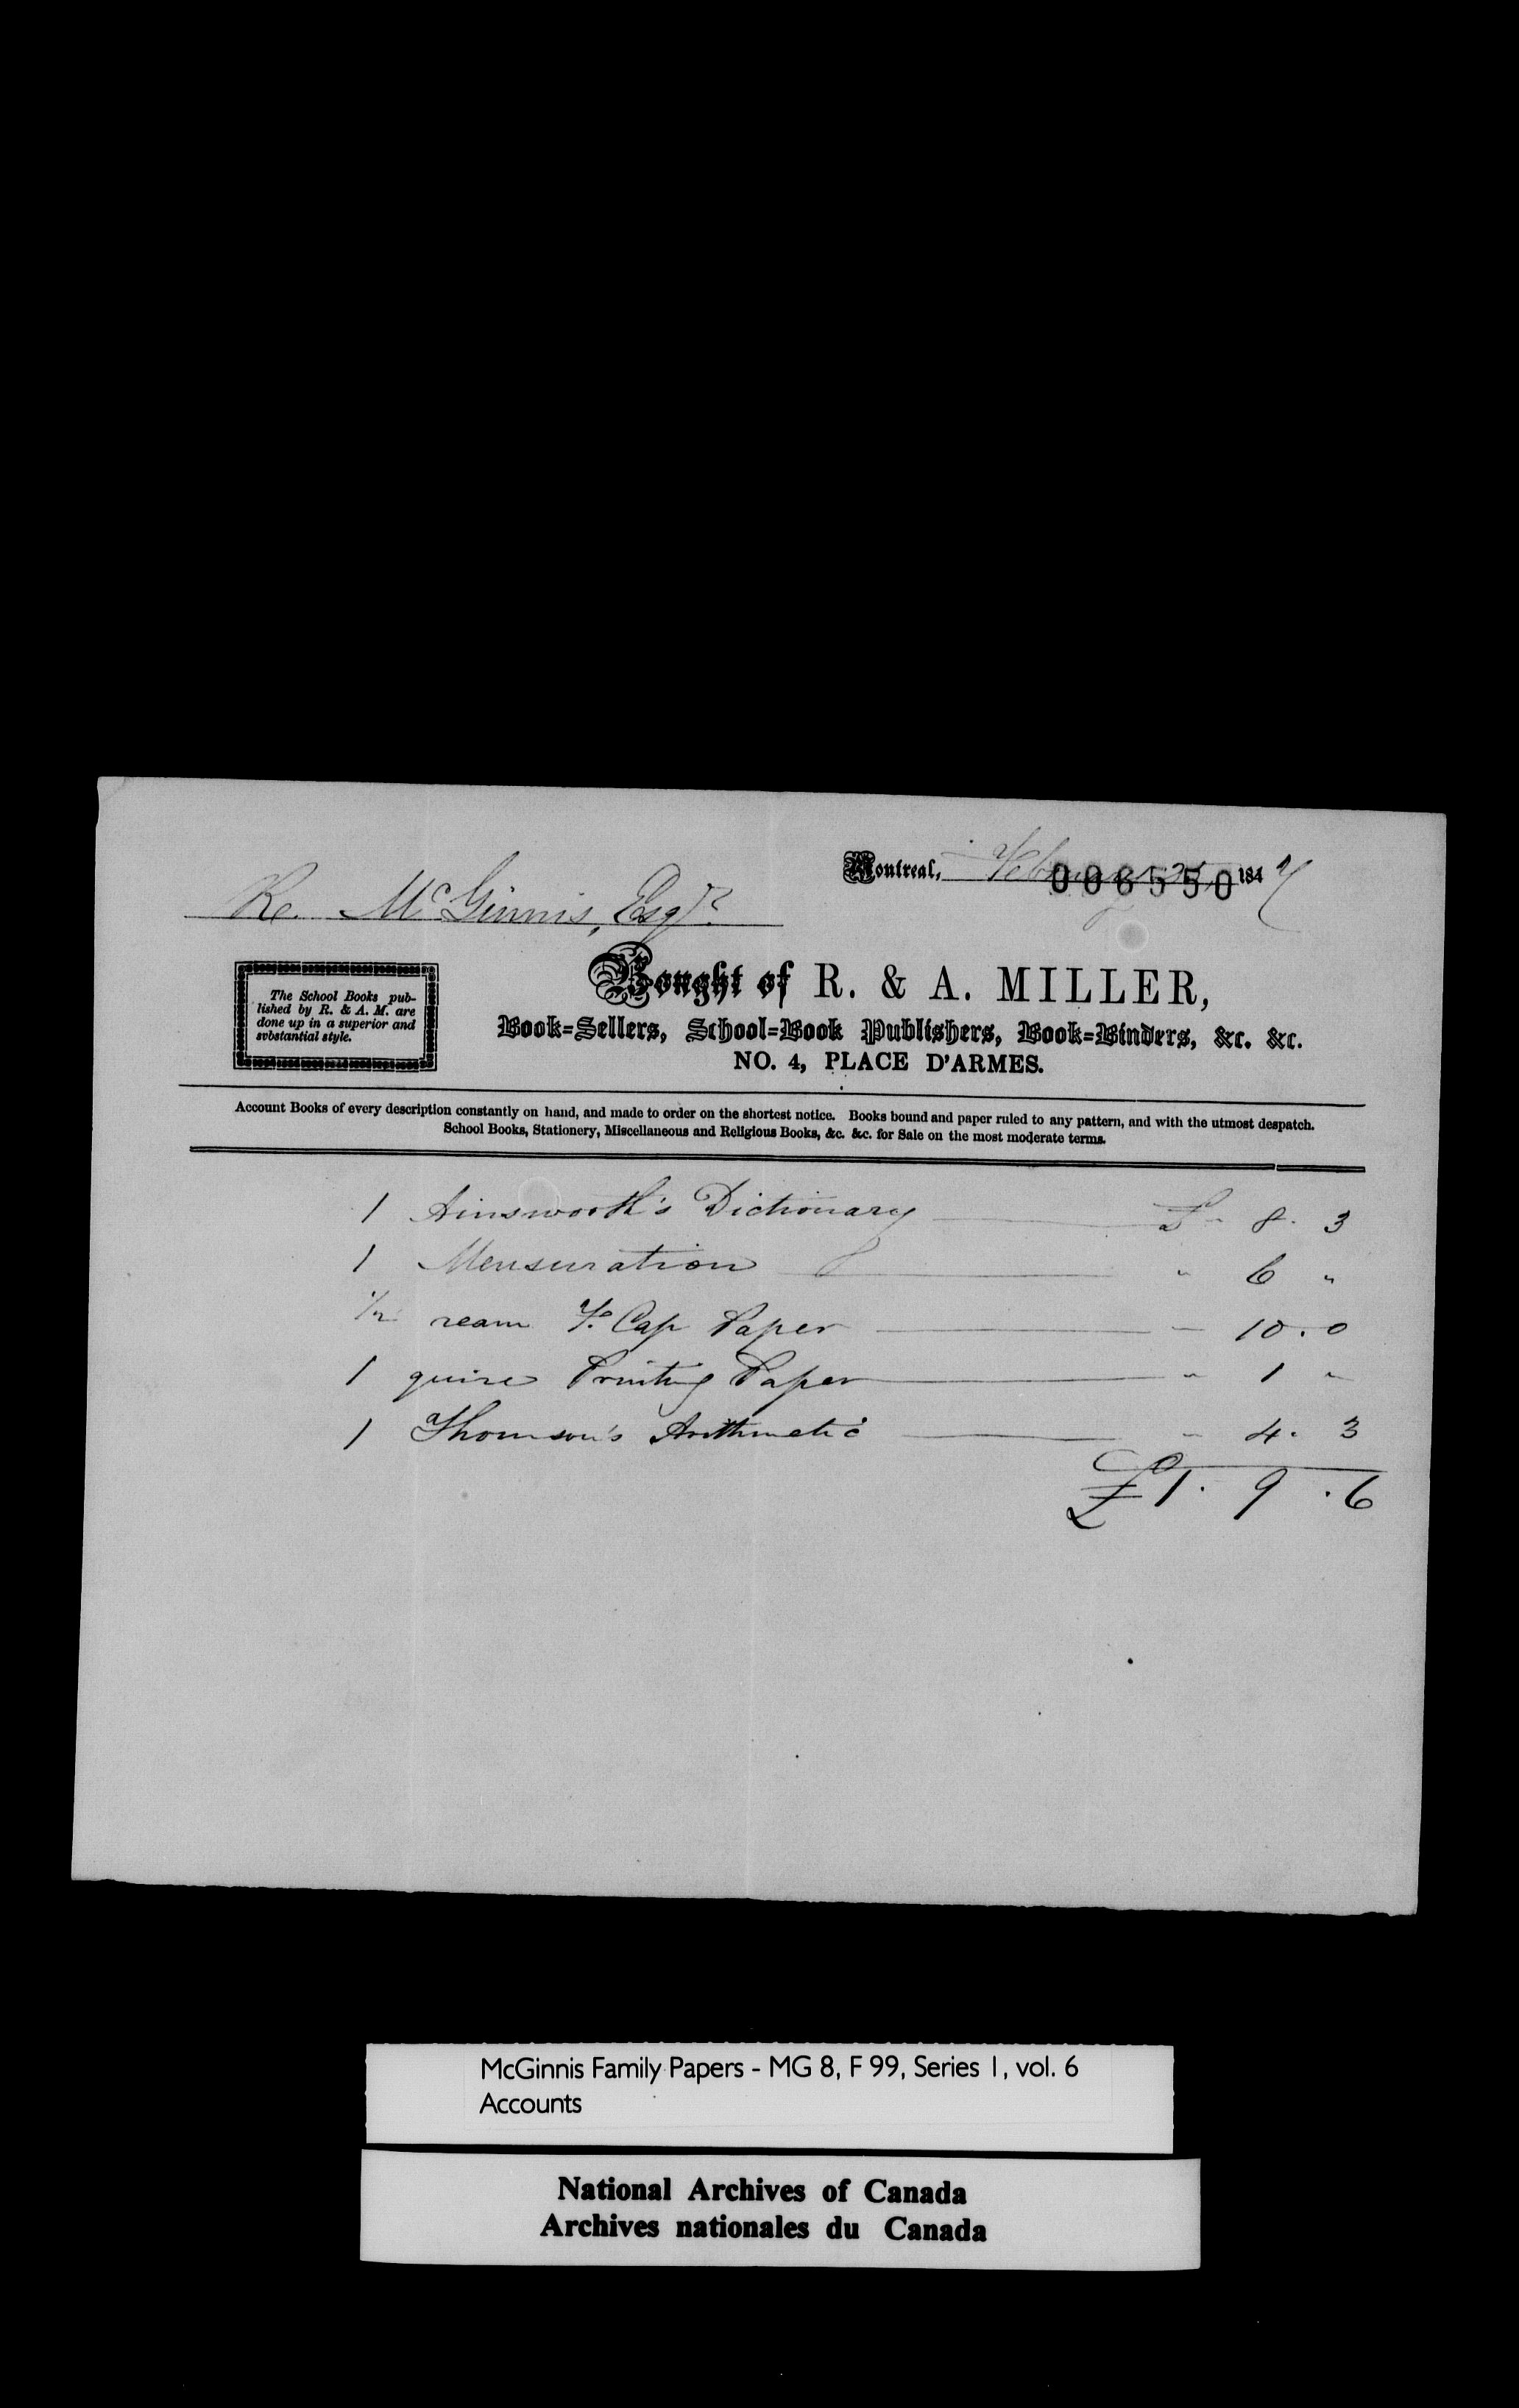 Montreal, February 184 7
006550
Re. McGinnis, Esqr.
The School Books pub-
lished by R. & A. M. are
done up in a superior and
svbstantial style.
Bought of R. & A. MILLER,
Book=Sellers, School=Book Publishers, Book=Binders, &c. &c.
NO. 4, PLACE D'ARMES.
Account Books of every description constantly on hand, and made to order on the shortest notice. Books bound and paper ruled to any pattern, and with the utmost despatch.
School Books, Stationery, Miscellaneous and Religious Books, &c. &c. for Sale on the most moderate terms.
1 Ainsworth's Dictionary £ " 8. 3
1 Mensuration " 6 "
1/2 ream Fo. Cap Paper " 10. 0
1 quire Printing Paper " 1 "
1 Thomson's Arithmetic " 4. 3
£1. 9. 6
McGinnis Family Papers - MG 8, F 99, Series 1, vol. 6
Accounts
National Archives of Canada
Archives nationales du Canada